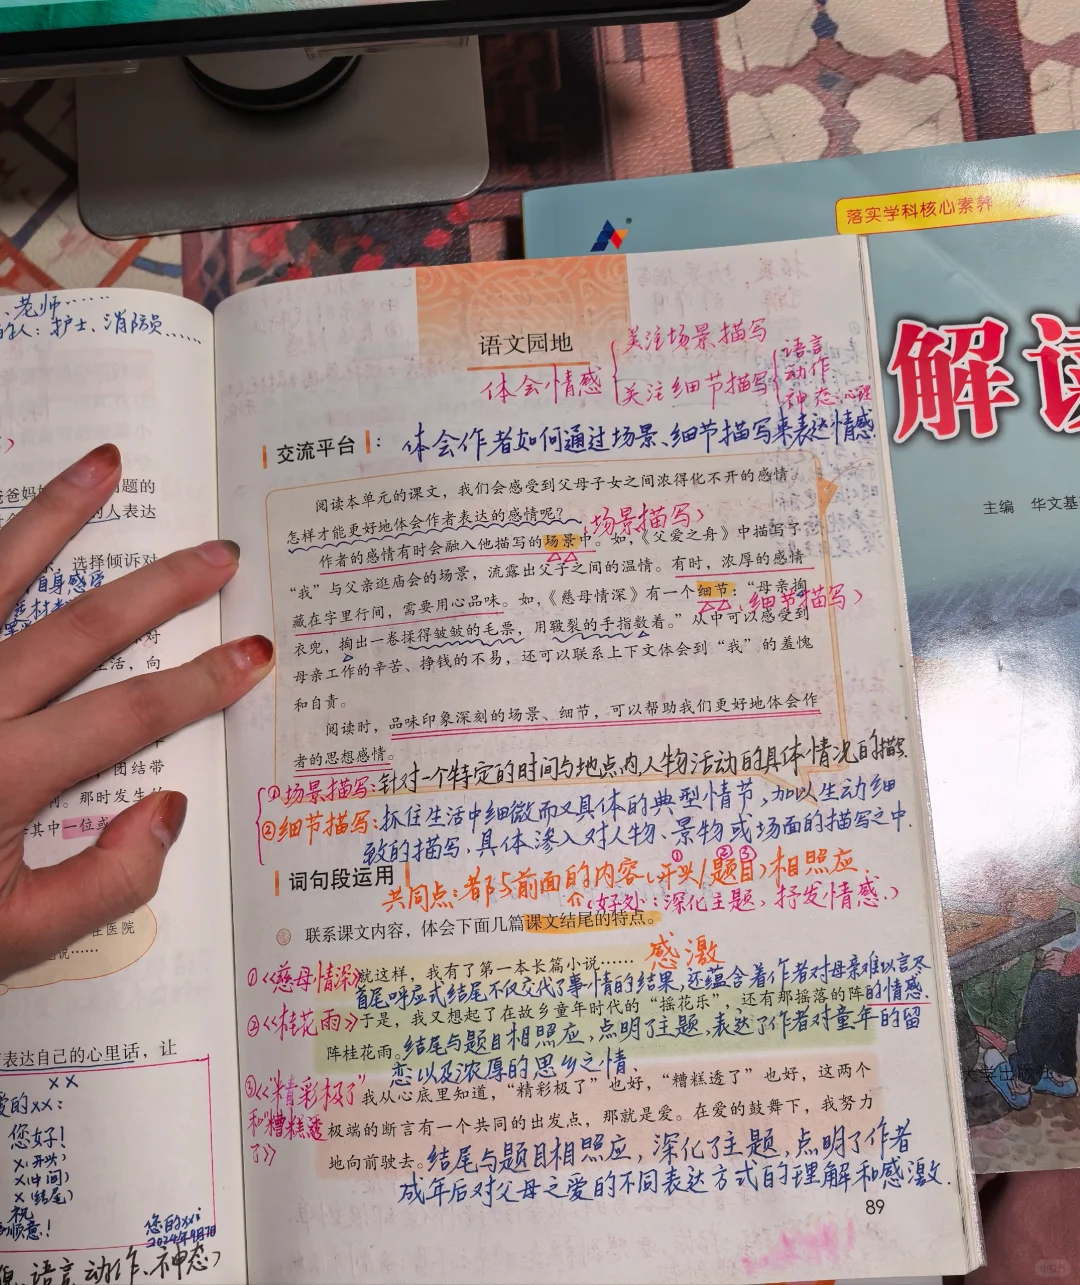 老师……
的人：护士、消防员……
爸妈
题的
人表达
选择倾诉对
自身感受
对
生活，向
团结带
那时发生
其中一位或
在医院
说……
表达自己的心里话，让
××
爱的××：
您好！
×(开头)
×(中间)
×(结尾)
祝
顺意！
您的××
2024年9月7日
语言、动作、神态）
落实学科核心素养
解读
主编 华文基
大学出版
语文园地
体会情感
关注场景描写
关注细节描写
语言
动作
神态、心理
交流平台：
体会作者如何通过场景、细节描写来表达情感
阅读本单元的课文，我们会感受到父母子女之间浓得化不开的感情。
怎样才能更好地体会作者表达的感情呢？
（场景描写）
作者的感情有时会融入他描写的场景中。如，《父爱之舟》中描写了
“我”与父亲逛庙会的场景，流露出父子之间的温情。有时，浓厚的感情
藏在字里行间，需要用心品味。如，《慈母情深》有一个细节：“母亲掏
（细节描写）
衣兜，掏出一卷揉得皱皱的毛票，用皲裂的手指数着。”从中可以感受到
母亲工作的辛苦、挣钱的不易，还可以联系上下文体会到“我”的羞愧
和自责。
阅读时，品味印象深刻的场景、细节，可以帮助我们更好地体会作
者的思想感情。
①场景描写：针对一个特定的时间与地点内，人物活动的具体情况的描写.
②细节描写：抓住生活中细微而又具体的典型情节，加以生动细
致的描写，具体渗入对人物、景物或场面的描写之中.
词句段运用
① ② ③
共同点：都与前面的内容（开头/题目）相照应.
（好处：深化主题，抒发情感.）
联系课文内容，体会下面几篇课文结尾的特点。
感激
①《慈母情深》
就这样，我有了第一本长篇小说……
首尾呼应式结尾不仅交代了事情的结果，还蕴含着作者对母亲难以言尽
的情感.
②《桂花雨》
于是，我又想起了在故乡童年时代的“摇花乐”，还有那摇落的阵
阵桂花雨。
结尾与题目相照应，点明了主题，表达了作者对童年的留
恋以及浓厚的思乡之情.
③《“精彩极了”
和“糟糕透
了”》
我从心底里知道，“精彩极了”也好，“糟糕透了”也好，这两个
极端的断言有一个共同的出发点，那就是爱。在爱的鼓舞下，我努力
地向前驶去。
结尾与题目相照应，深化了主题，点明了作者
成年后对父母之爱的不同表达方式的理解和感激.
89